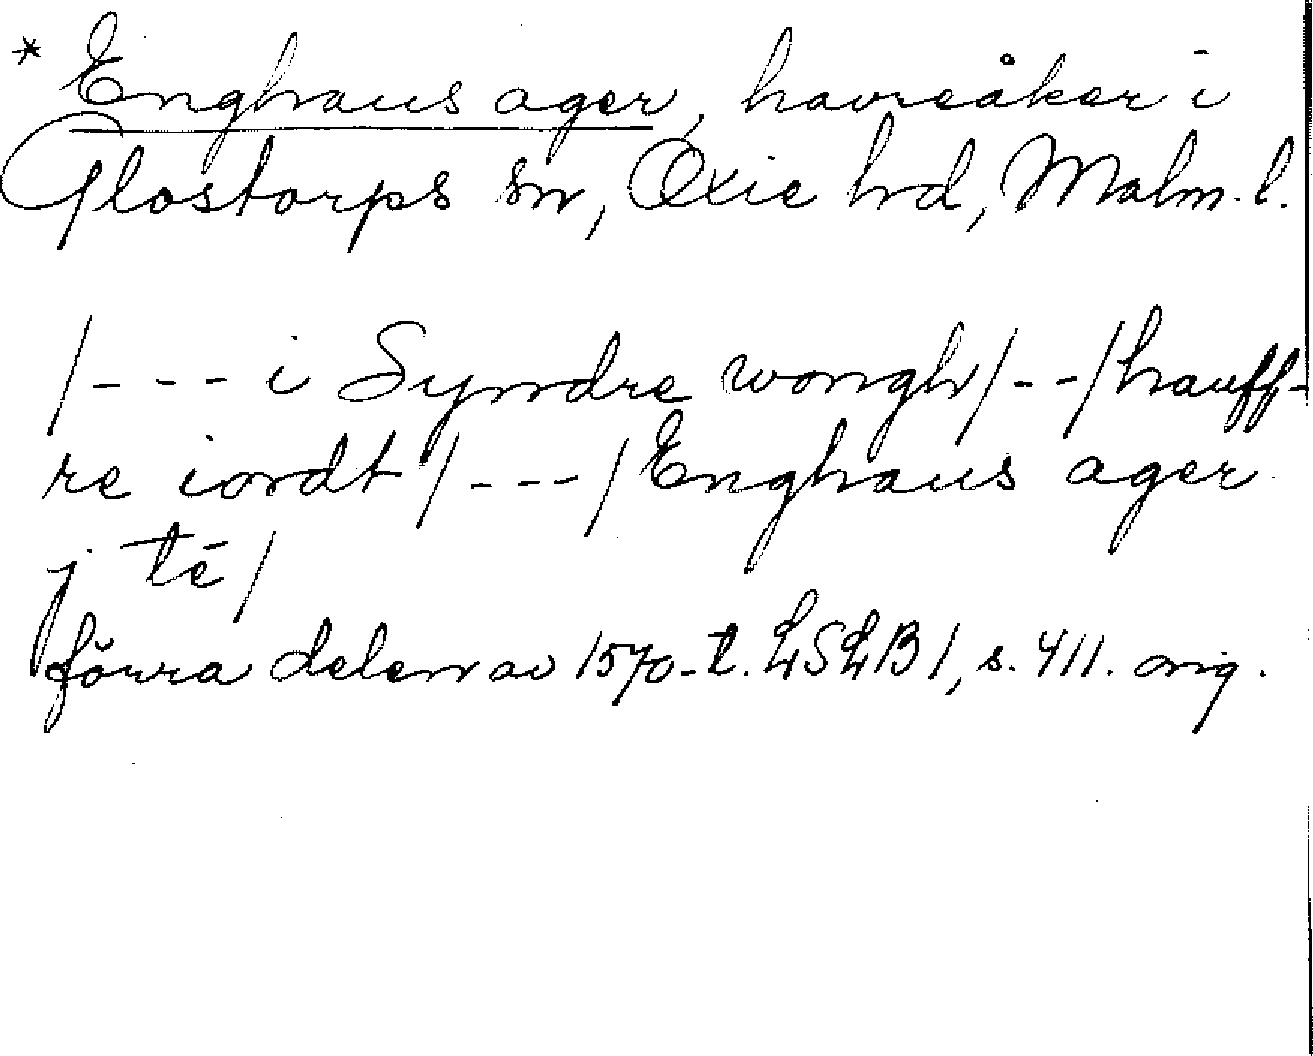 * Enghaus ager, havreåker i
Glostorps sn, Oxie hd, Malm. l.
/- - - i Syndre wongh/- -/hauff-
re iordt/- - -/Enghaus ager
j té/
förra delen av 1570-t. LSLB 1, s. 411. orig.